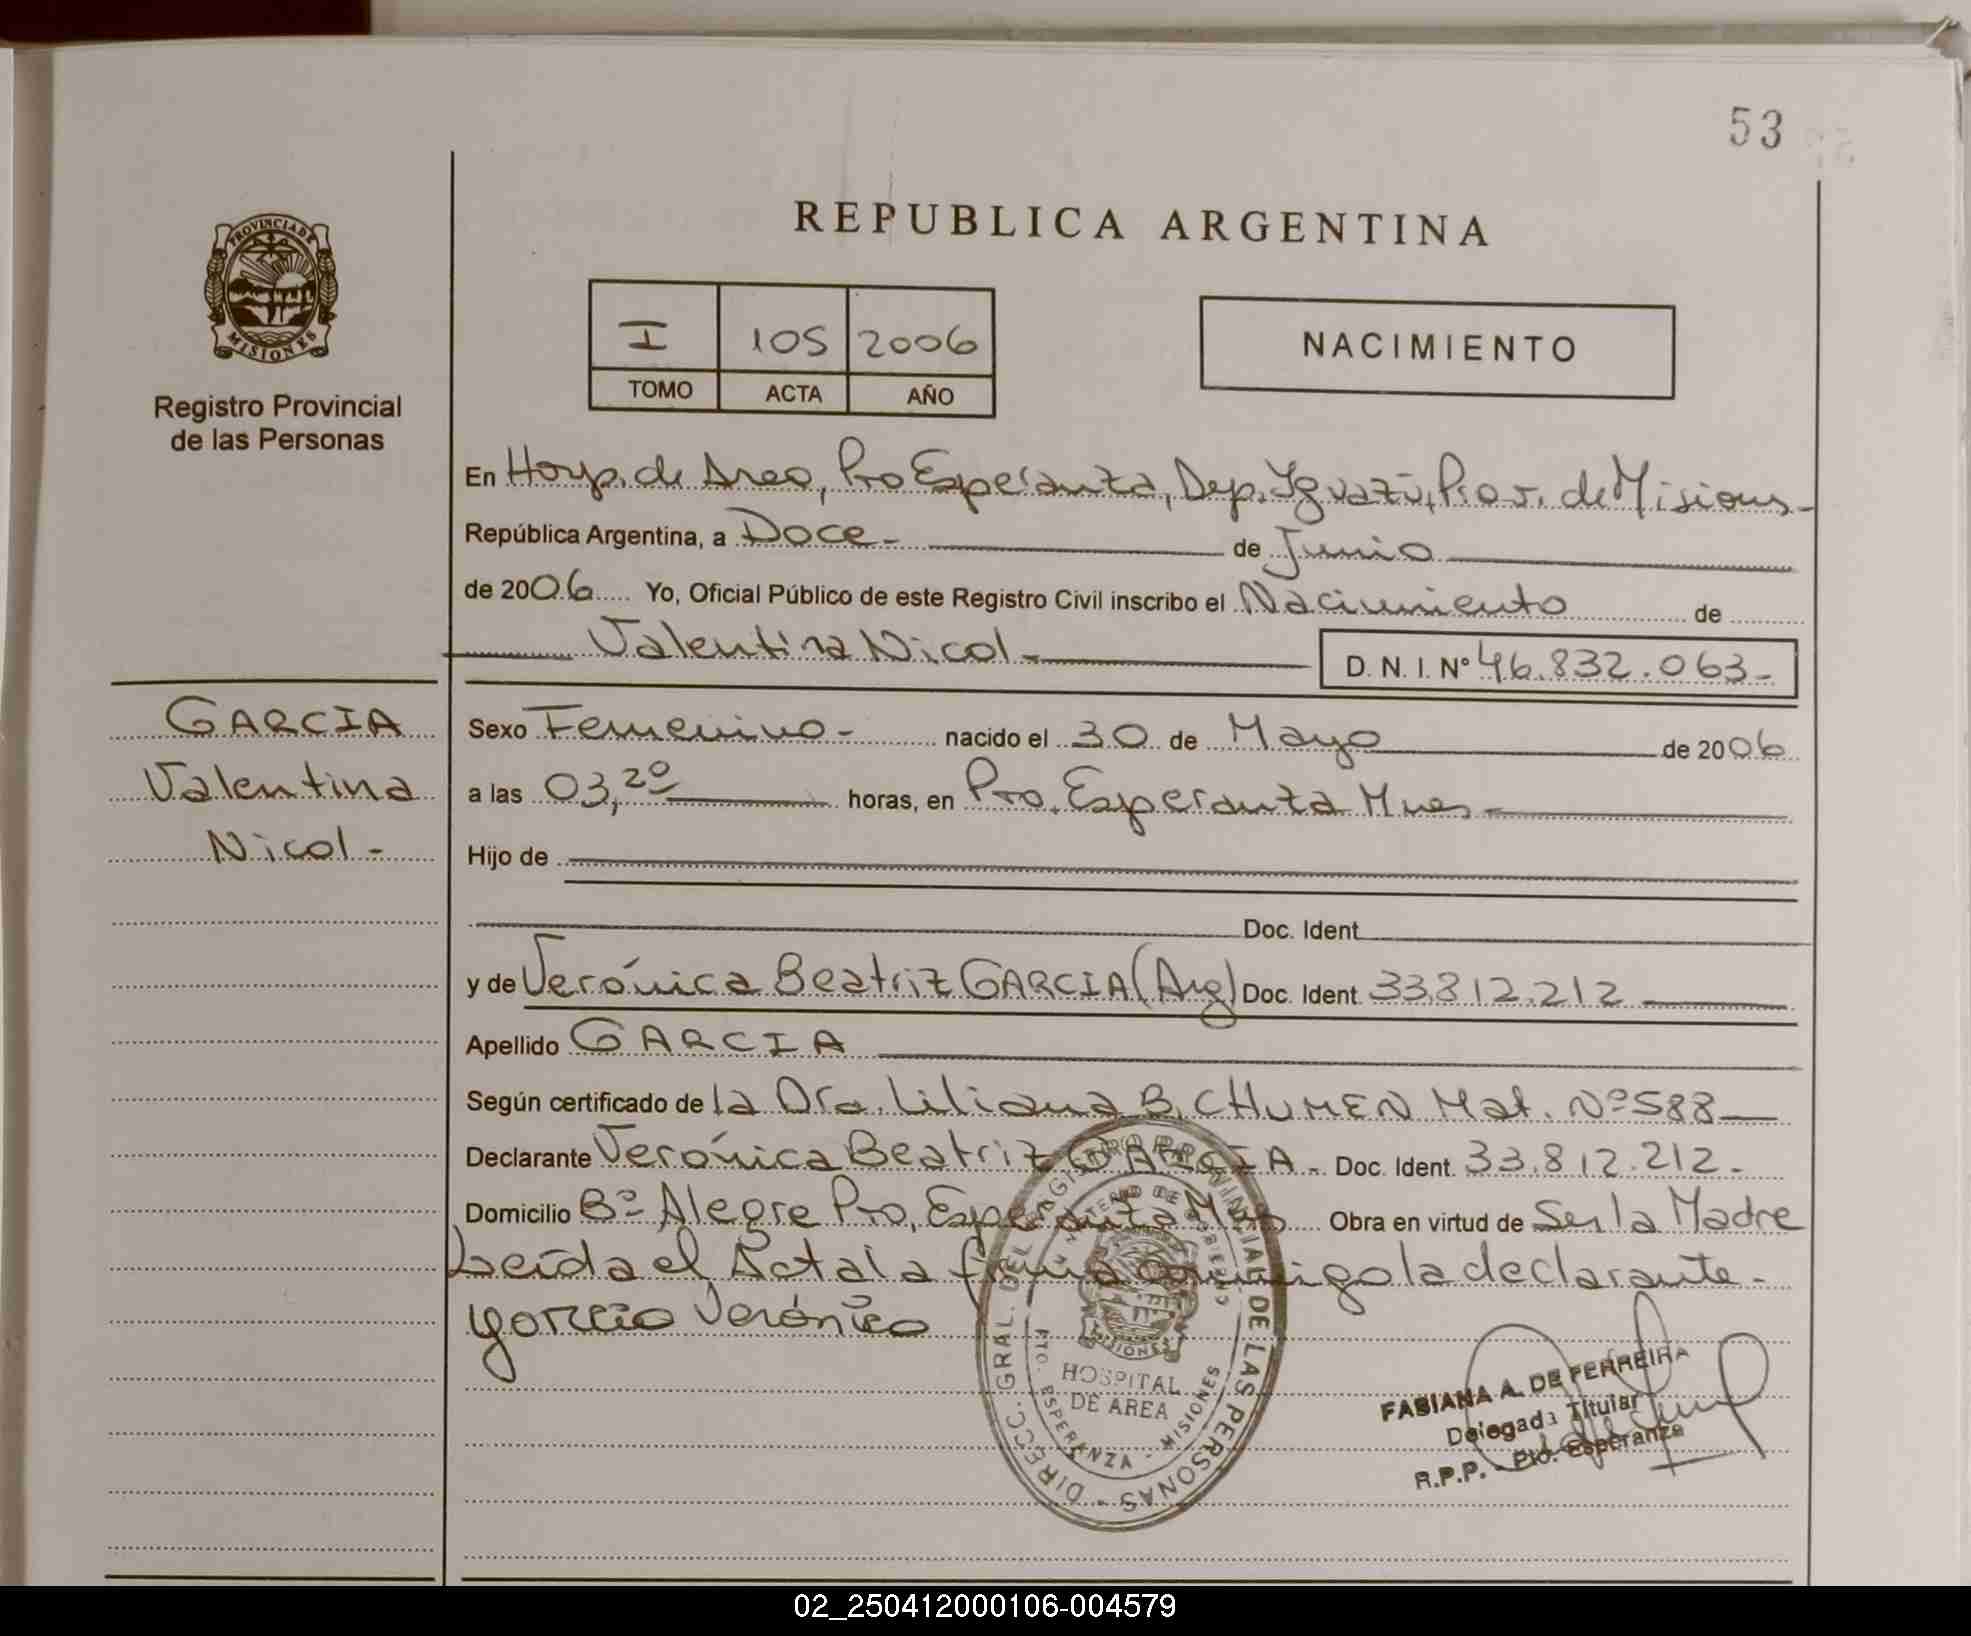 53
REPUBLICA ARGENTINA
PROVINCIA DE
MISIONES
Registro Provincial
de las Personas
I 105 2006
TOMO ACTA AÑO
NACIMIENTO
En Hosp. de Area, Pto Esperanza, Dep. Iguazú, Prov. de Misiones -
República Argentina, a Doce - de Junio
de 2006 Yo, Oficial Público de este Registro Civil inscribo el Nacimiento de
Valentina Nicol - D. N. I. N° 46.832.063 -
GARCIA
Valentina
Nicol -
Sexo Femenino - nacido el 30 de Mayo de 2006
a las 03,20 horas, en Pto. Esperanza Mnes -
Hijo de
Doc. Ident
y de Verónica Beatriz GARCIA (Arg) Doc. Ident 33.812.212
Apellido GARCIA
Según certificado de la Dra. Liliana B. CHUMEN Mat. Nº 588
Declarante Verónica Beatriz GARCIA - Doc. Ident. 33.812.212 -
Domicilio Bº Alegre Pto. Esperanza Mnes Obra en virtud de Ser la Madre
Leída el Acta la firma conmigo la declarante -
Garcia Verónica
DIRECC. GRAL. DEL REGISTRO PROVINCIAL DE LAS PERSONAS -
MINISTERIO DE GOBIERNO
MISIONES
HOSPITAL
DE AREA
PTO. ESPERANZA - MISIONES
FABIANA A. DE FERREIRA
Delegada Titular
R.P.P. - Pto. Esperanza
02_250412000106-004579